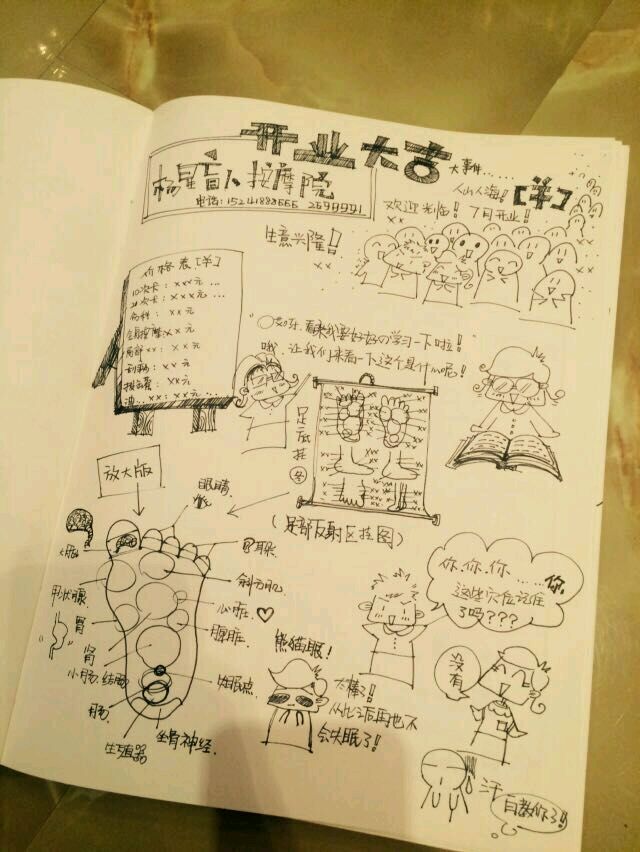 开业大吉
杨星盲人按摩院
电话: 15241888666 2699991
大事件.....
人山人海! 【羊】
欢迎光临! 7月开业!
生意兴隆!
价格表【羊】
10次卡: xxx元 ...
20次卡: xxx元 ...
足疗: xx元
全身按摩: xx元
局部xx: xx元
刮痧: xx元
拔火罐: xx元
看来我要好好的学习一下啦!
哦, 让我们来看一下这个是什么呢!
足底挂图
(足部反射区挂图)
放大版
眼睛
大脑
耳朵
甲状腺
斜方肌
胃
心脏
肾
脾脏
小肠 结肠
失眠点
肠
生殖器
坐骨神经
熊猫眼!
太棒了!
从此以后再也不
会失眠了!
你.你.你......你,
这些穴位记住
了吗???
没有
汗
白教你了!!